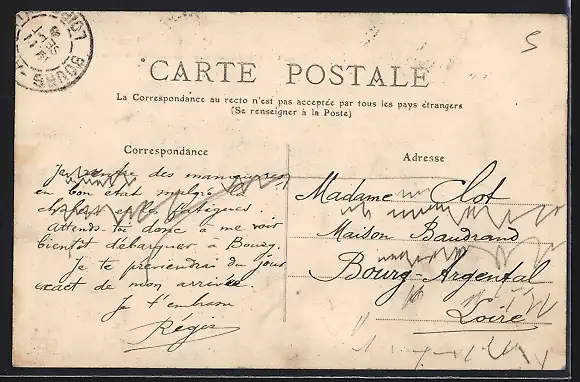 CARTE POSTALE
La Correspondance au recto n'est pas acceptée par tous les pays étrangers
(Se renseigner à la Poste)
Correspondance
Je rentre des manoeuvres
en bon état malgré la
chaleur et les fatigues.
Attends-toi donc à me voir
bientôt débarquer à Bourg.
Je te préviendrai du jour
exact de mon arrivée.
Je t'embrasse
Régis
Adresse
Madame Clot
Maison Baudrand
Bourg-Argental
Loire
5
BOURG-A
LOIRE